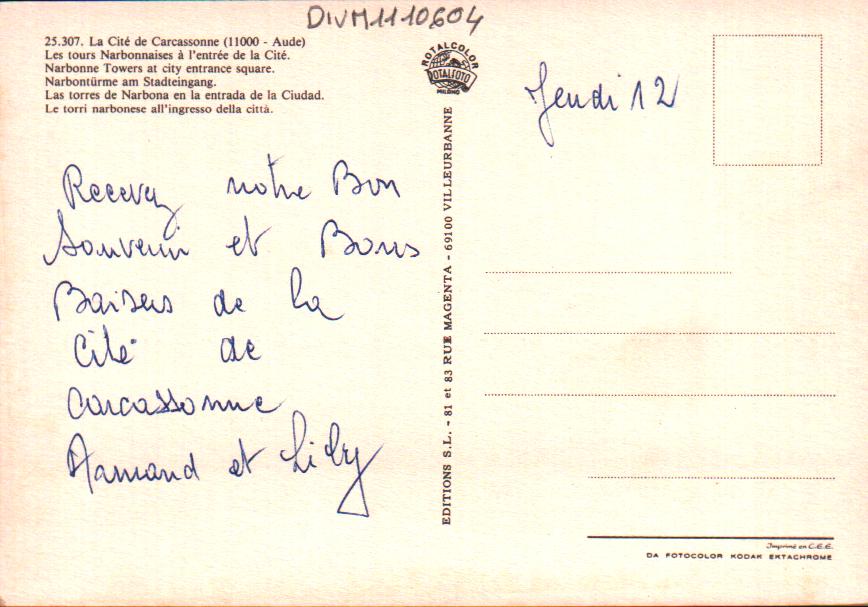 DIVM1110604
25.307. La Cité de Carcassonne (11000 - Aude)
Les tours Narbonnaises à l'entrée de la Cité.
Narbonne Towers at city entrance square.
Narbontürme am Stadteingang.
Las torres de Narbona en la entrada de la Ciudad.
Le torri narbonese all'ingresso della città.
Recevez notre Bon
Souvenir et Bons
Baisers de la
Cité de
Carcassonne
Armand et Lily
ROTALCOLOR
ROTALFOTO
MILANO
EDITIONS S.L. - 81 et 83 RUE MAGENTA - 69100 VILLEURBANNE
Jeudi 12
Imprimé en C.E.E.
DA FOTOCOLOR KODAK EKTACHROME